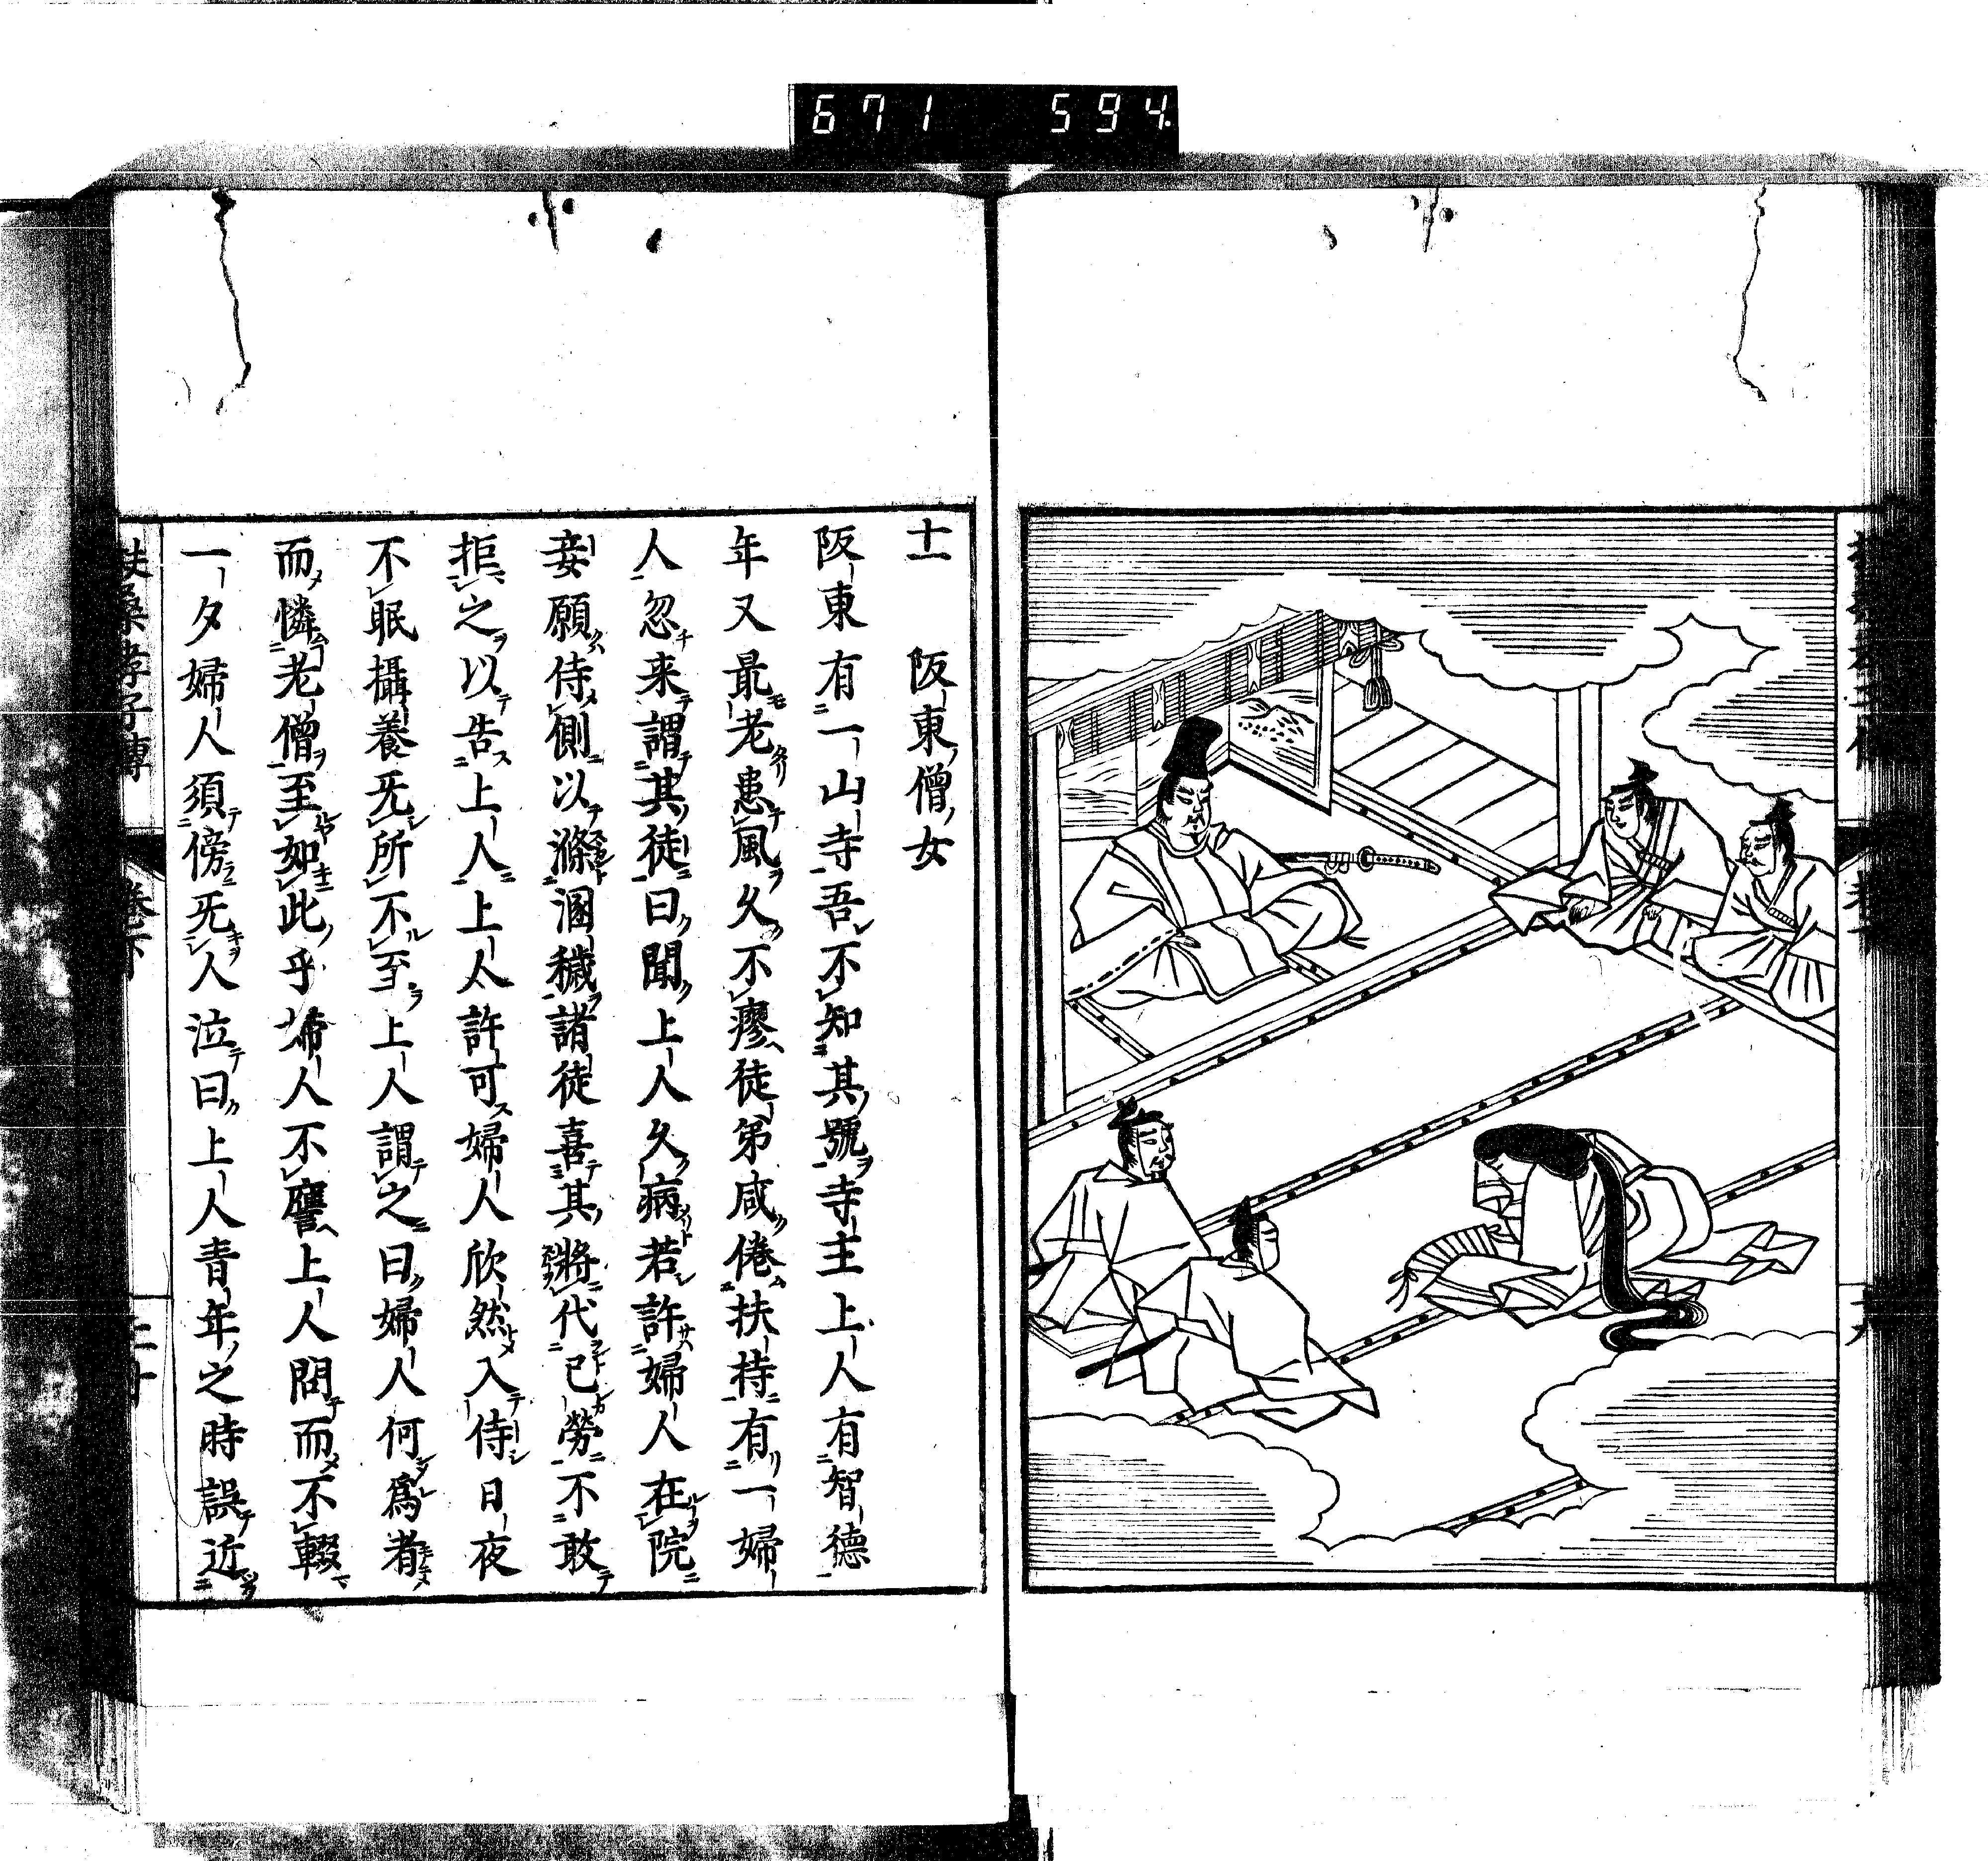 671 594
十一 阪東僧女
阪東有一山寺吾不知其號寺主上人有智德
年又最老患風久不瘳徒弟咸倦扶持有一婦
人忽来謂其徒曰聞上人久病若許婦人在院
妾願侍側以滌溷穢諸徒喜其將代己勞不敢
拒之以告上人上人許可婦人欣然入侍日夜
不眠攝養旡所不至上人謂之曰婦人何爲者
而憐老僧至如此乎婦人不譍上人問而不輟
一夕婦人須傍旡人泣曰上人青年之時誤近
扶桑孝子傳 卷下